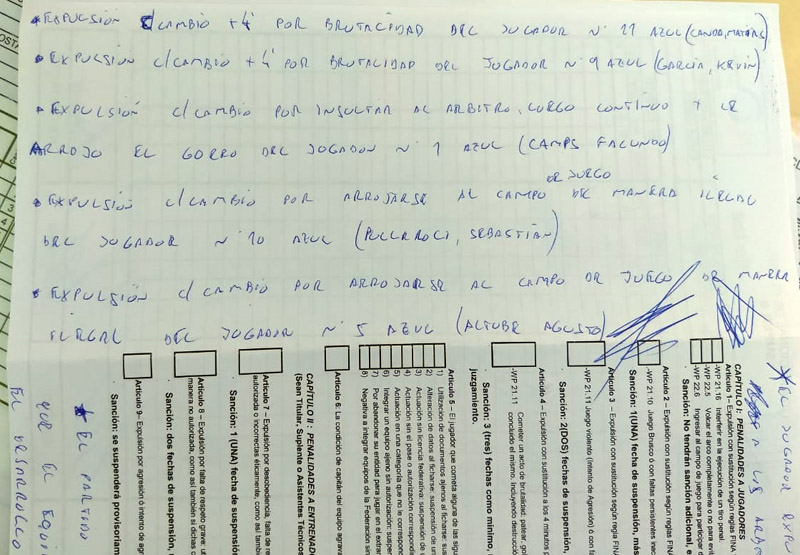 EXPULSIÓN C/CAMBIO +4' POR BRUTALIDAD DEL JUGADOR N° 11 AZUL (CANDO, MATÍAS)
EXPULSIÓN C/CAMBIO +4' POR BRUTALIDAD DEL JUGADOR N° 9 AZUL (GARCÍA, KEVIN)
EXPULSIÓN C/CAMBIO POR INSULTAR AL ARBITRO, LUEGO CONTINUO + LE
ARROJO EL GORRO DEL JUGADOR N° 1 AZUL (CAMPS FACUNDO)
DE JUEGO
EXPULSIÓN C/CAMBIO POR ARROJARSE AL CAMPO DE MANERA ILEGAL
DEL JUGADOR N° 10 AZUL (SEBASTIÁN)
EXPULSIÓN C/CAMBIO POR ARROJARSE AL CAMPO DE JUEGO DE MANERA
ILEGAL DEL JUGADOR N° 5 AZUL (ALTUBE AGUSTO)
CAPÍTULO I: PENALIDADES A JUGADORES
Artículo 1 – Expulsión con sustitución según reglas FIN
-WP 21.16 Interferir en la ejecución de un tiro penal.
-WP 22.5 Volcar el arco completamente o no para evitar
-WP 22.6 Ingresar al campo de juego para participar
Sanción: No tendrán sanción adicional, e
Artículo 2 – Expulsión con sustitución según reglas FIN
-WP 21.10 Juego Brusco o con faltas persistentes
Sanción: 1(UNA) fecha de suspensión, más
Artículo 3 – Expulsión con sustitución según regla FIN
-WP 21.11 Juego violento (Intento de Agresión) o con fa
Sanción: 2(DOS) fechas de suspensión,
Artículo 4 – Expulsión con sustitución a los 4 minutos
-WP 21.11 Cometer un acto de brutalidad, patear, gol
concluido el mismo. Incluyendo destrucció
Sanción: 3 (tres) fechas como mínimo,
juzgamiento.
Artículo 5 – El jugador que cometa alguna de las sig
1) Utilización de documentos ajenos al ficharse: sus
2) Alteración de datos al ficharse: suspensión de u
3) Actuación sin licencia federativa: suspensión de
4) Actuación sin el pase o autorización correspond
5) Actuación en una categoría que no le correspond
6) Integrar un equipo ajeno sin autorización: suspen
7) Por abandonar su entidad para jugar en el extran
8) Negativa a integrar equipos de la Federación sin
Artículo 6: La condición de capitán del equipo agrava
CAPÍTULO II : PENALIDADES A ENTRENAD
(Sean Titular, Suplente o Asistentes Técnicos
Artículo 7 – Expulsión por desobediencia, falta de re
autorizada o incorrectas éticamente, como así tamb
Sanción: 1 (UNA) fecha de suspensión
Artículo 8 – Expulsión por falta de respeto grave
manera no autorizada, como así también si dichas
Sanción: dos fechas de suspensión,
Artículo 9- Expulsión por agresión o intento de agr
Sanción: se suspenderá provisoriam
EL JUGADOR EXPU
A LOS ARBI
EL PARTIDO
QUE EL EQUI
EL DESARROLLO